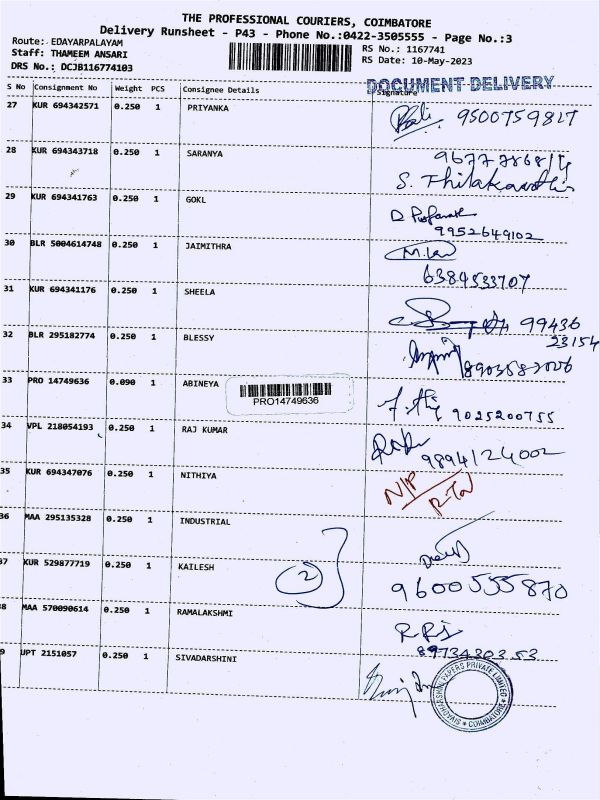 THE PROFESSIONAL COURIERS, COIMBATORE
Delivery Runsheet - P43 - Phone No.:0422-3505555 - Page No.:3
Route: EDAYARPALAYAM
Staff: THAMEEM ANSARI
DRS No.: DCJB116774103
RS No.: 1167741
RS Date: 10-May-2023
DOCUMENT DELIVERY
S No Consignment No Weight PCS Consignee Details Signature
27 KUR 694342571 0.250 1 PRIYANKA 9500759817
28 KUR 694343718 0.250 1 SARANYA
29 KUR 694341763 0.250 1 GOKL
9952649102
30 BLR 5004614748 0.250 1 JAIMITHRA
6384533707
31 KUR 694341176 0.250 1 SHEELA 99436
23154
32 BLR 295182774 0.250 1 BLESSY
33 PRO 14749636 0.090 1 ABINEYA
PRO14749636
9025200755
34 VPL 218054193 0.250 1 RAJ KUMAR
9894124002
35 KUR 694347076 0.250 1 NITHIYA N/P
36 MAA 295135328 0.250 1 INDUSTRIAL
37 KUR 529877719 0.250 1 KAILESH 2
9600555870
38 MAA 570090614 0.250 1 RAMALAKSHMI
8973430353
39 UPT 2151057 0.250 1 SIVADARSHINI
PAPERS PRIVATE LIMITED
COIMBATORE